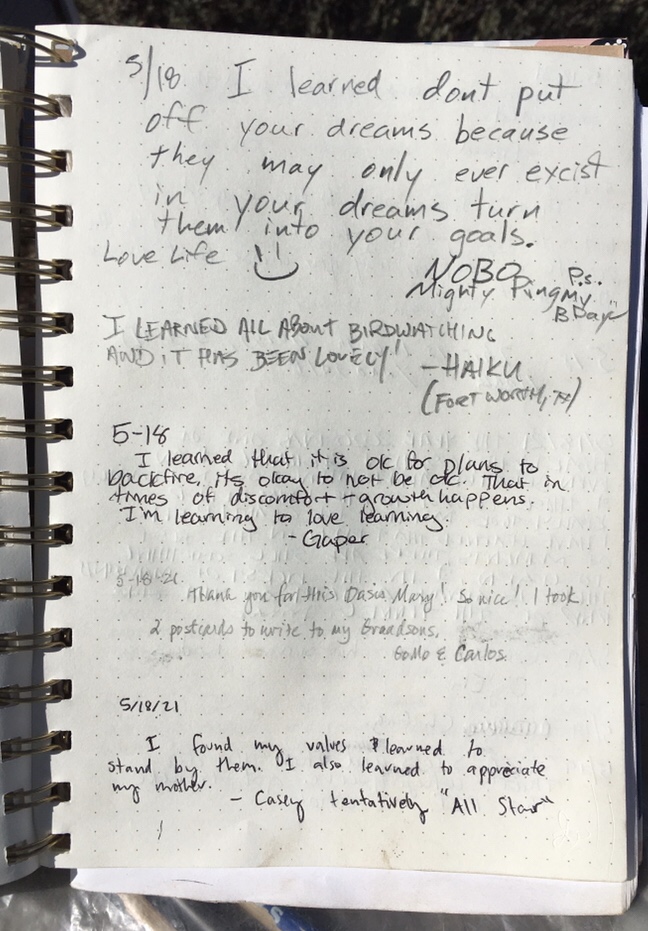 5/18 I learned dont put
off your dreams because
they may only ever excist
in your dreams turn
them into your goals.
Love Life
NOBO P.s.
Mighty Ping My
B Day
I LEARNED ALL ABOUT BIRDWATCHING
AND IT HAS BEEN LOVELY!
- HAIKU
(FORT WORTH, TX)
5-18
I learned that it is ok for plans to
backfire, its okay to not be ok. That in
times of discomfort + growth happens.
I'm learning to love learning.
- Gaper
5-18-21
Thank you for this Mary! So nice! I took
2 postcards to write to my Grandsons.
GoMo & Carlos.
5/18/21
I found my values & learned to
stand by them. I also learned to appreciate
my mother.
- Casey tentatively "All Star"